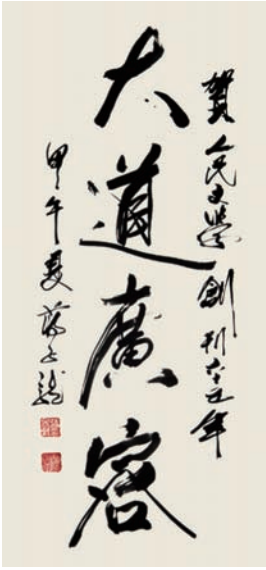 賀人民文學創刊六十五年
大道廣容
甲午夏 蔣子龍